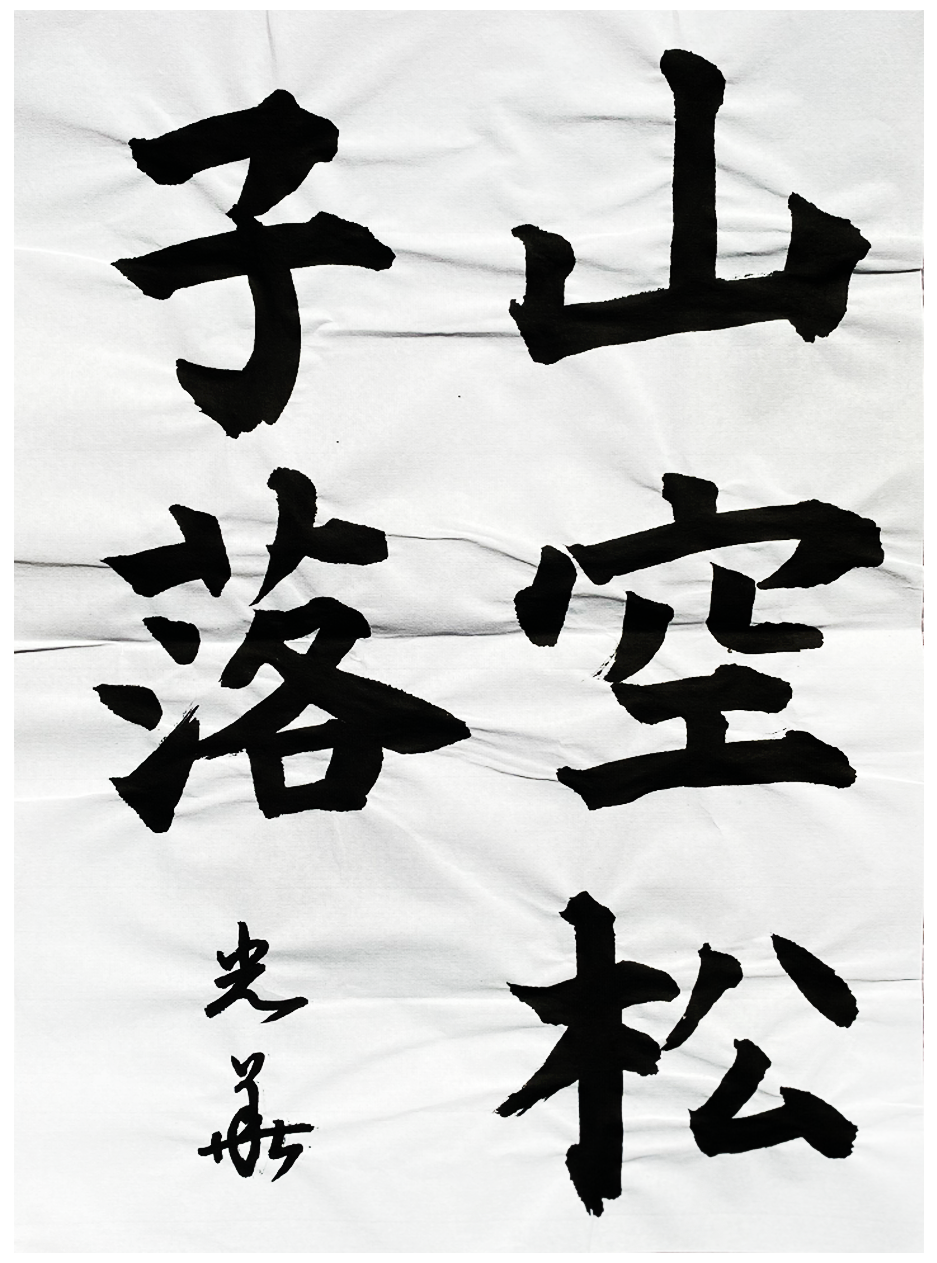 山空松
子落
光華